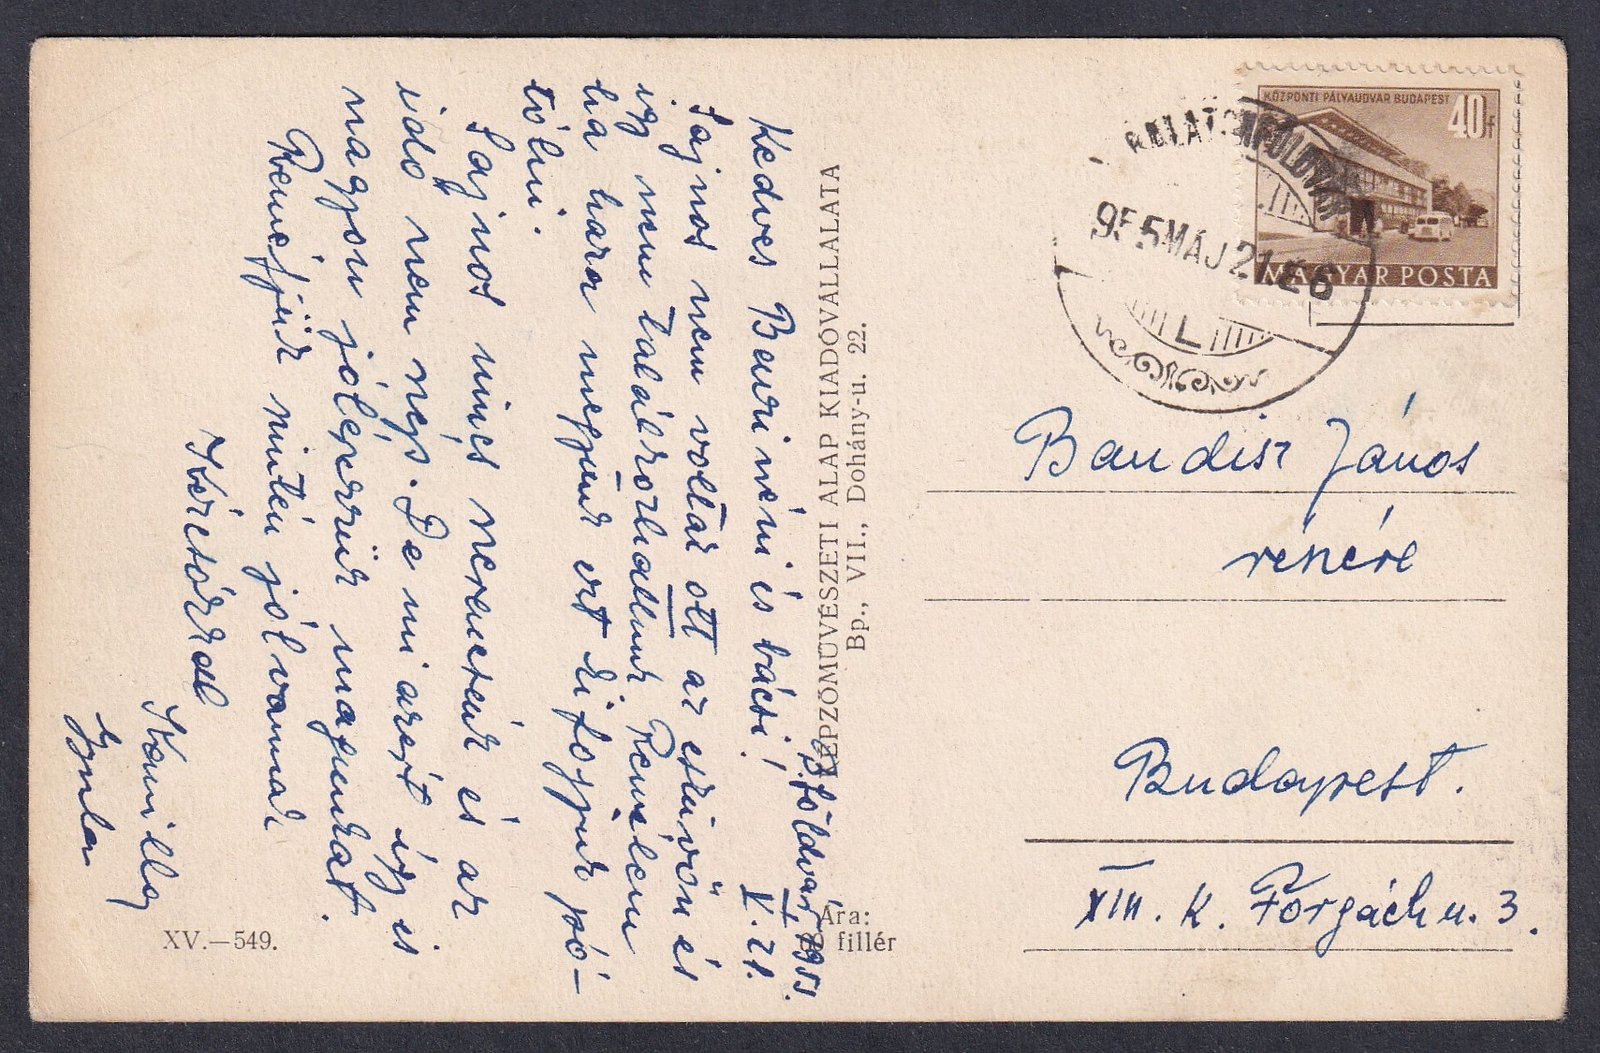 B. földvár, 1955.
V. 21.
Kedves Bauri néni és bácsi!
Sajnos nem voltak ott az esküvőn és
így nem találkozhattunk. Remélem
ha haza megyünk ezt ki fogjuk pó-
tolni.
Sajnos nincs szerencsénk és az
idő nem szép. De mi azért így is
nagyon jól érezzük magunkat.
Reméljük mindenki jól vannak
Kézcsókkal
Kamilla
Gyula
KÉPZŐMŰVÉSZETI ALAP KIADÓVÁLLALATA
Bp., VII., Dohány-u. 22.
XV.—549.
Ára:
fillér
KÖZPONTI PÁLYAUDVAR BUDAPEST
40f
MAGYAR POSTA
BALATONFÖLDVÁR
955 MÁJ 21
L
Bandisz János
részére
Budapest.
XIII. k. Forgách u. 3.